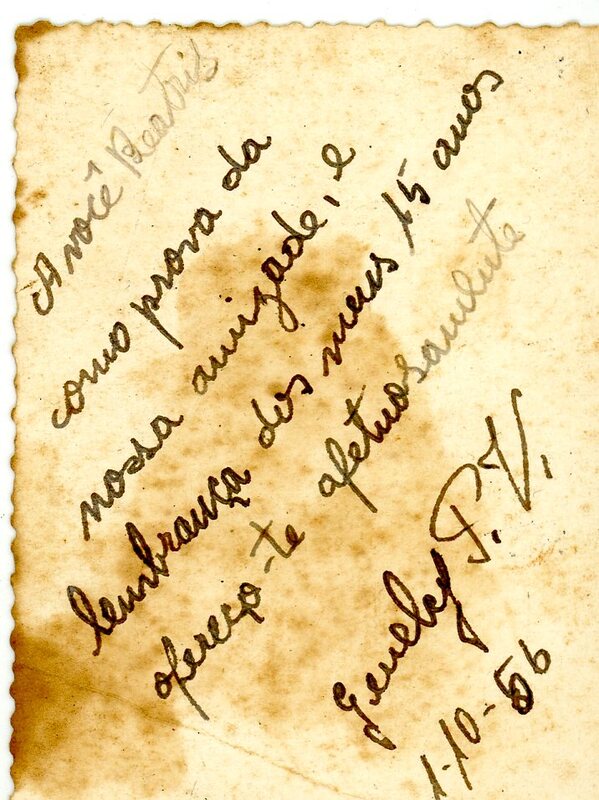 A você Beatris
como prova da
nossa amizade, e
lembrança dos meus 15 anos
ofereço-te afetuosamente
P. V.
1-10-56